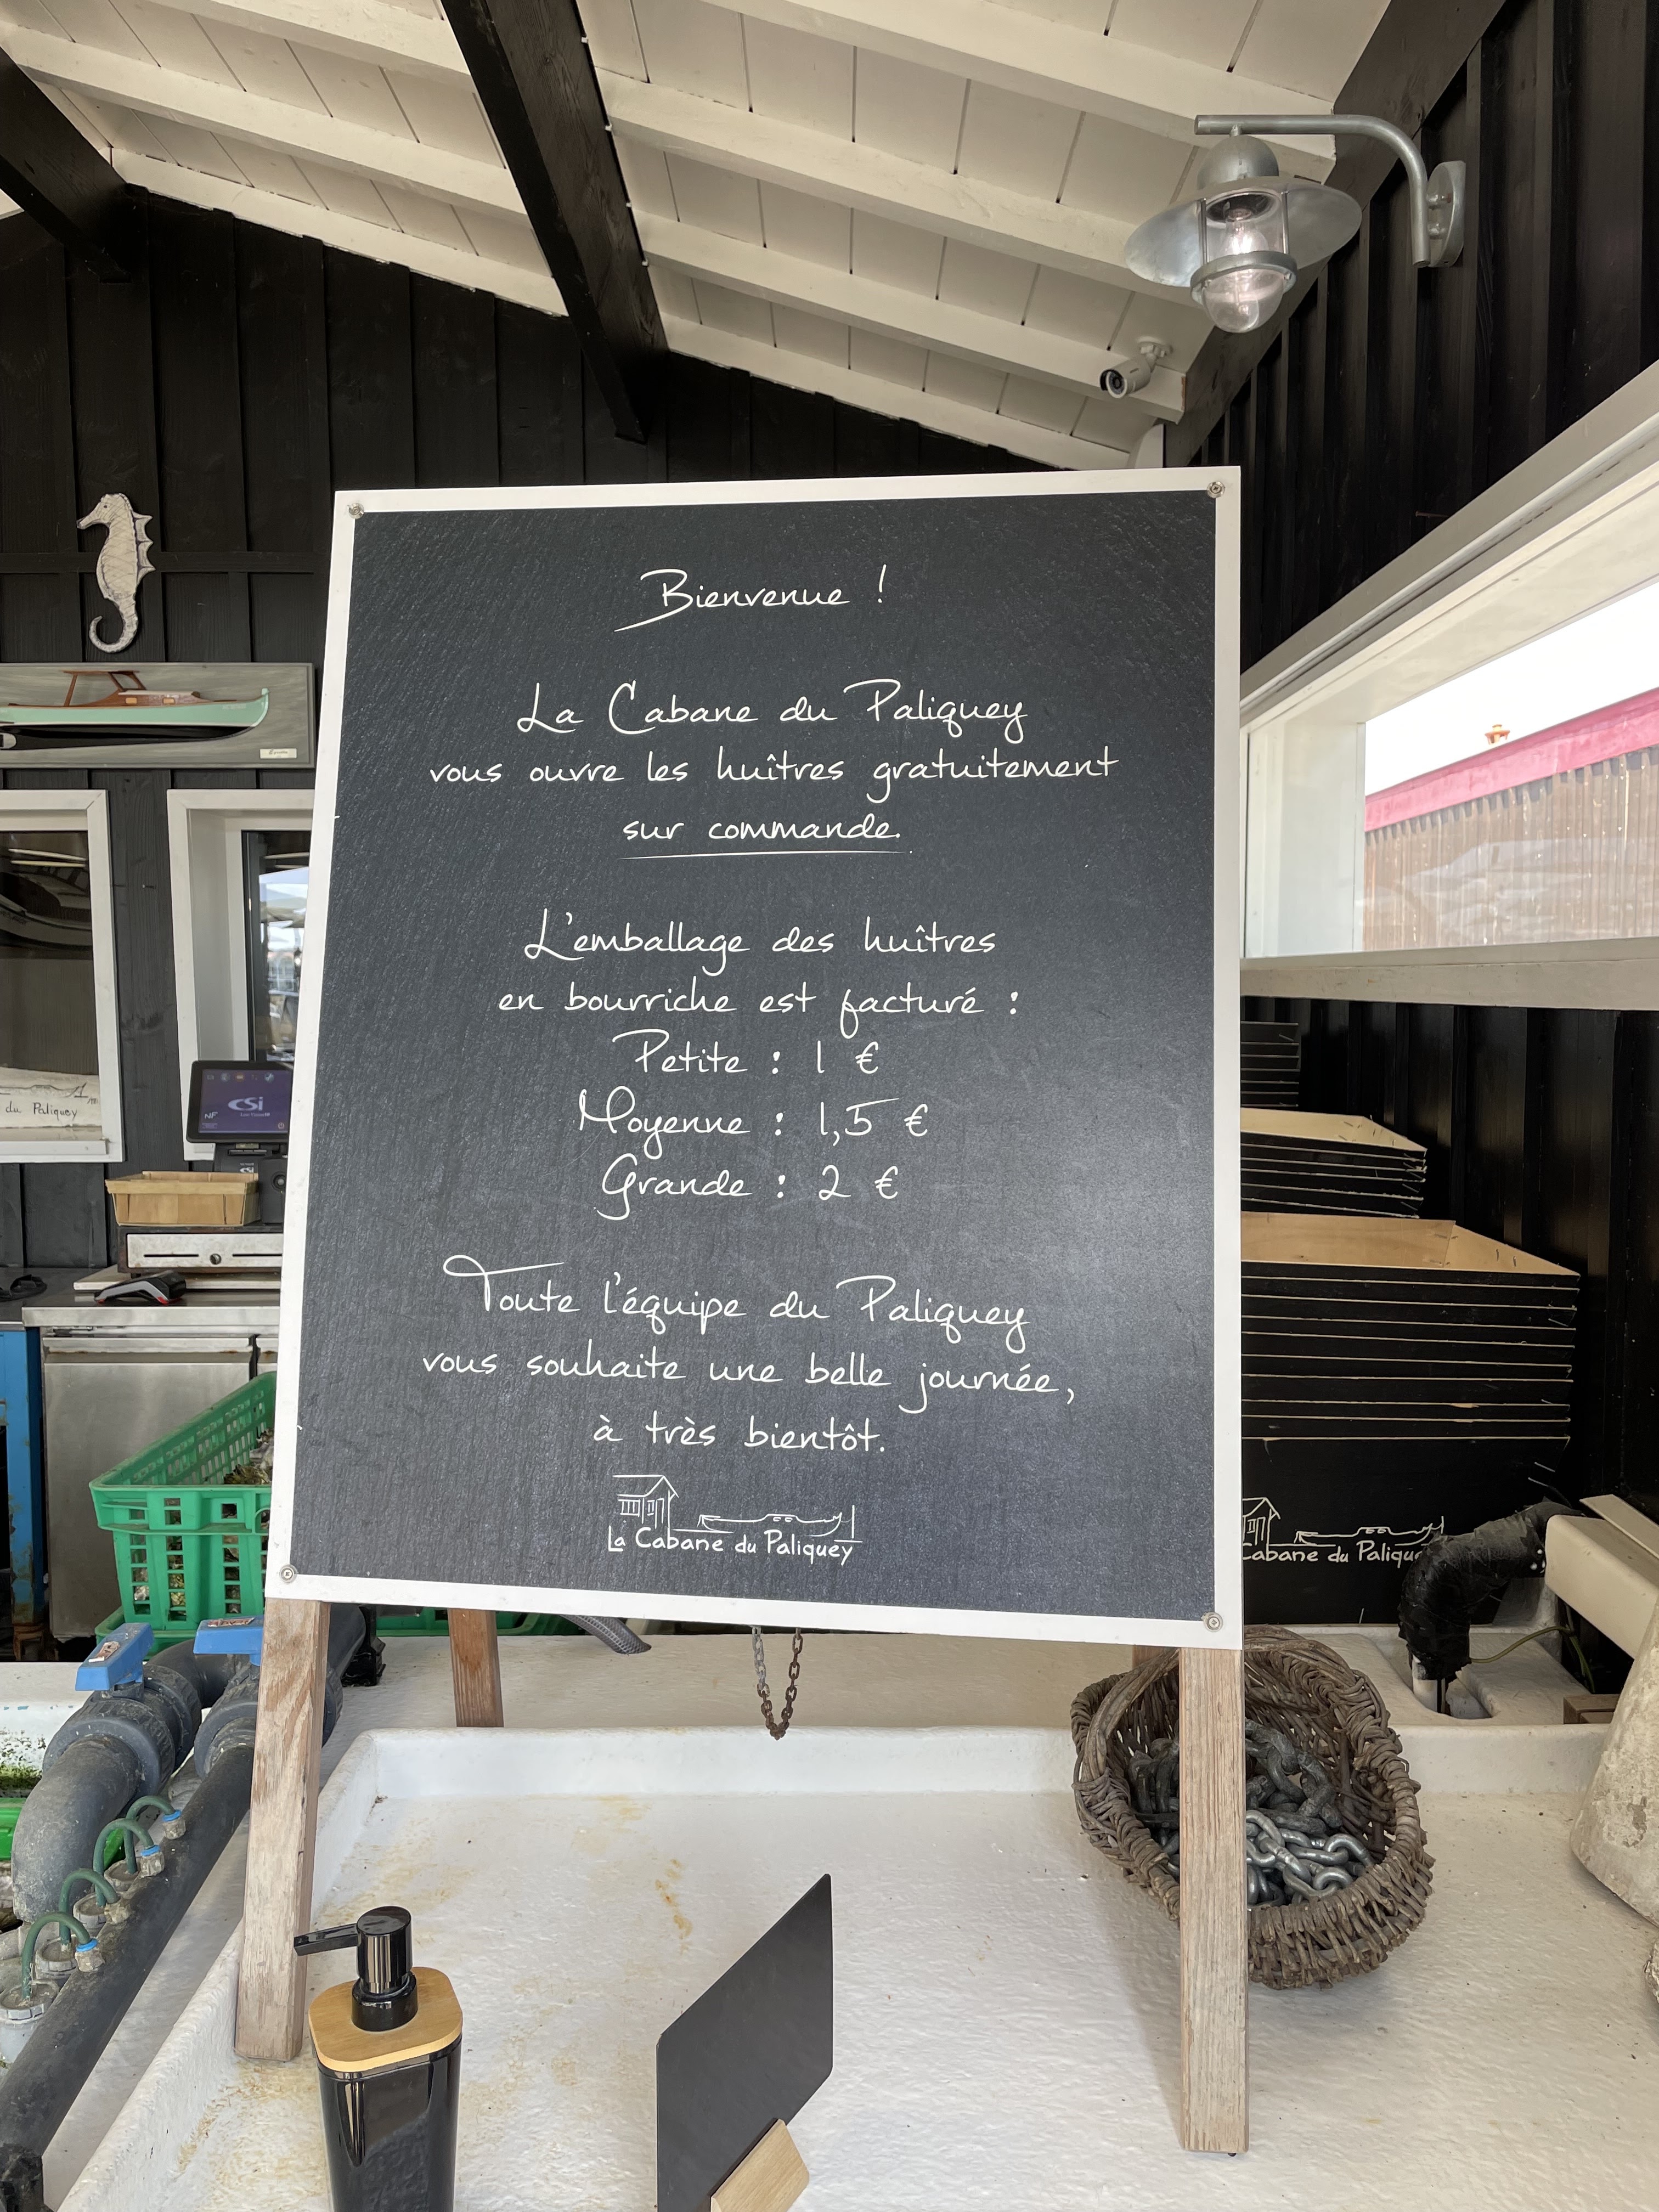 Bienvenue !
La Cabane du Paliquey
vous ouvre les huîtres gratuitement
sur commande.
L'emballage des huîtres
en bourriche est facturé :
Petite : 1 €
Moyenne : 1,5 €
Grande : 2 €
Toute l'équipe du Paliquey
vous souhaite une belle journée,
à très bientôt.
La Cabane du Paliquey
du Paliquey
NF
CSi
Cabane du Palique